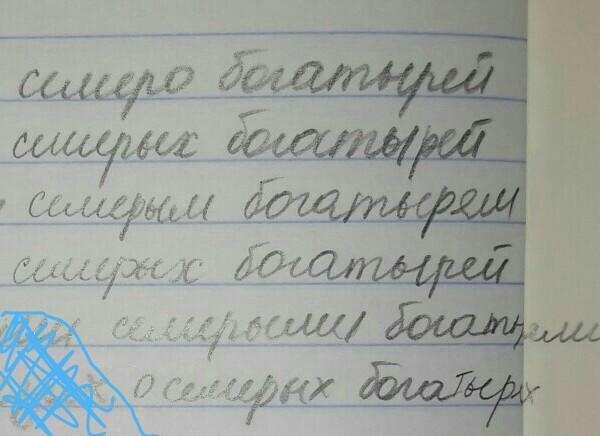 семеро богатырей
семерых богатырей
семерым богатырям
семерых богатырей
семерыми богатырями
о семерых богатырях